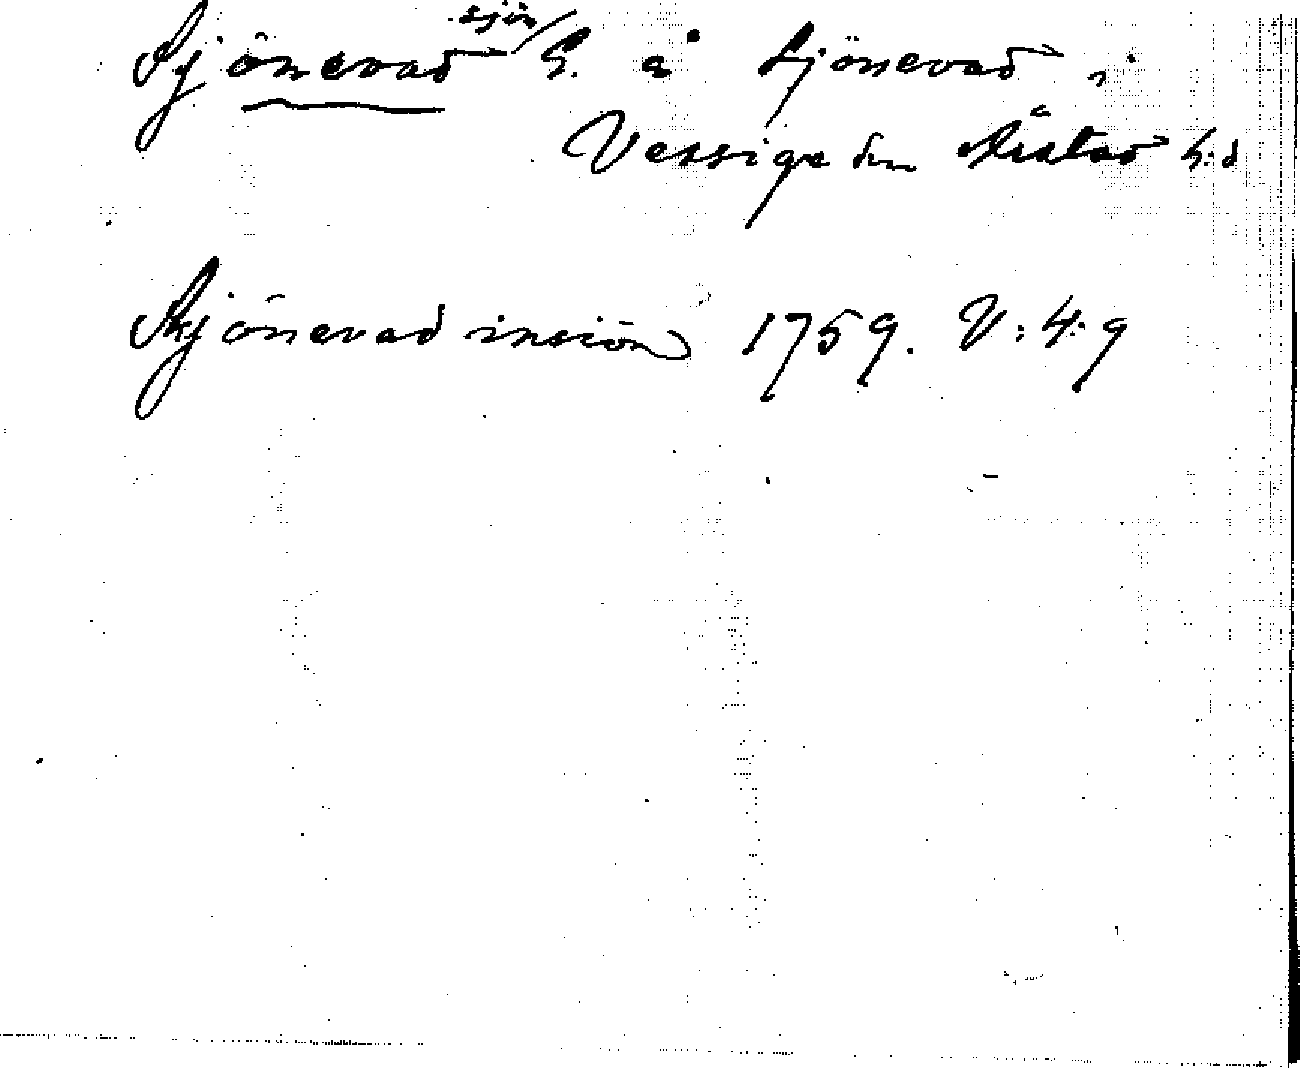 Sjönevadsjön G. å Sjönevad i
Vessige sn Årstad h:d
Skjönevad insiön 1759. V:4:9